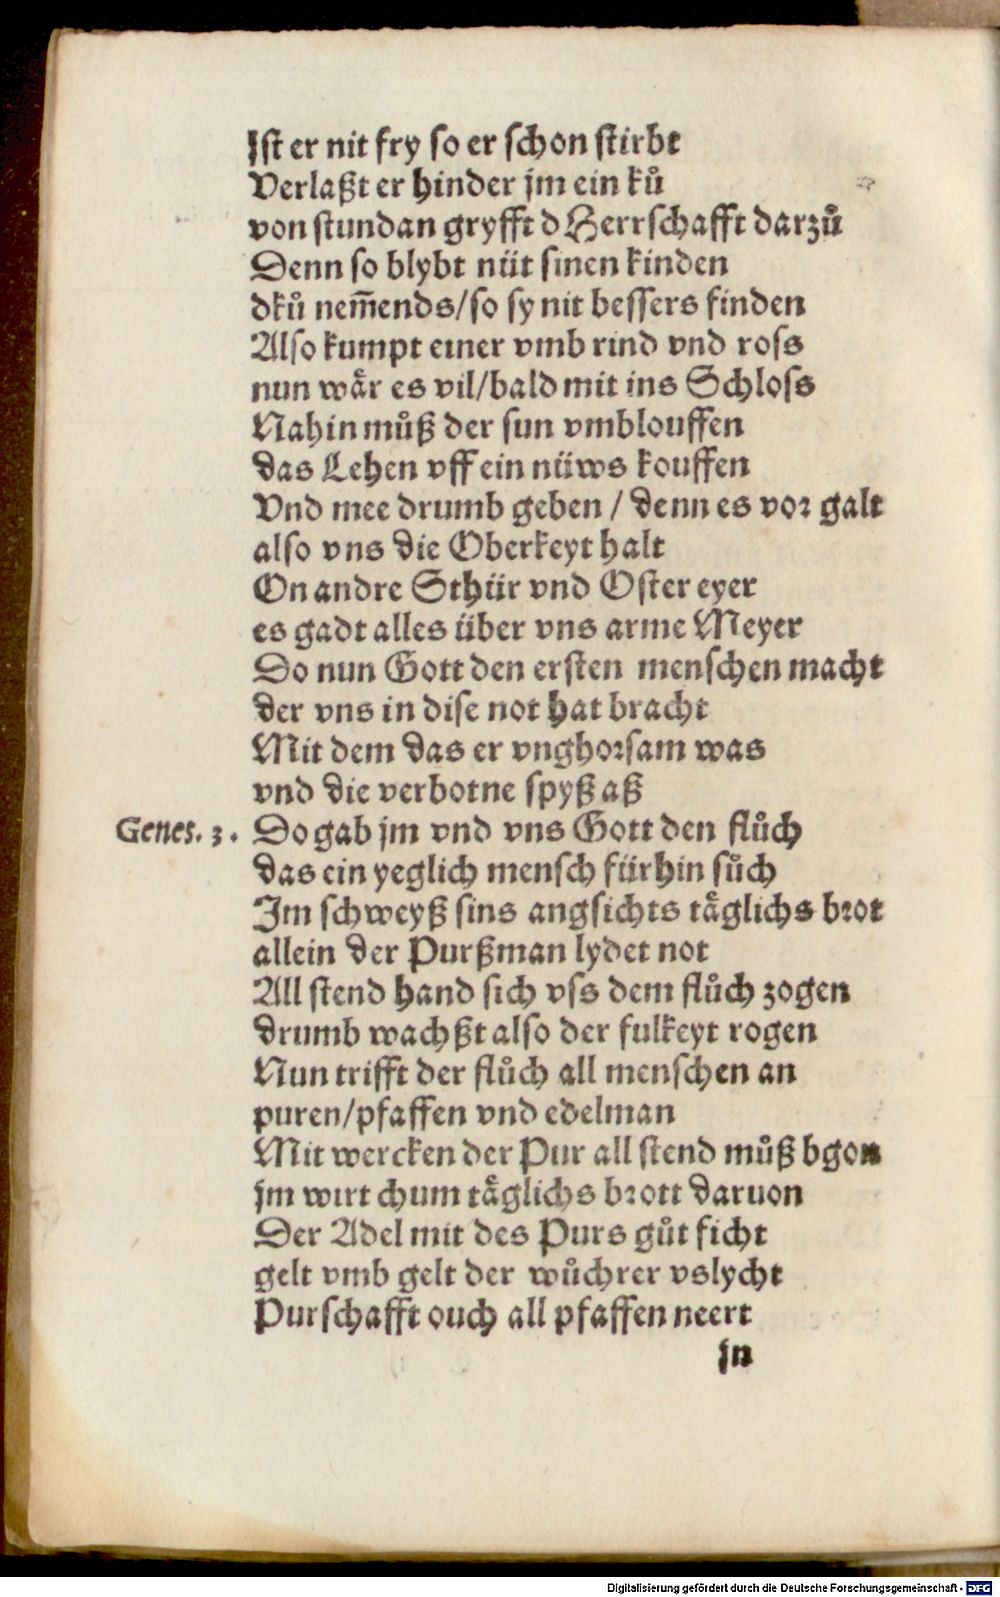 Ist er nit fry so er schon stirbt
Verlaßt er hinder jm ein ků
von stundan gryfft d Herrschafft darzů
Denn so blybt nüt sinen kinden
dků nem̄ends/so sy nit bessers finden
Also kumpt einer vmb rind vnd ross
nun wåͤr es vil/bald mit ins Schloss
Nahin můß der sun vmblouffen
das Lehen vff ein nüws kouffen
Vnd mee drumb geben / denn es vor galt
also vns die Oberkeyt halt
On andre Sthür vnd Oster eyer
es gadt alles über vns arme Meyer
Do nun Gott den ersten menschen macht
der vns in dise not hat bracht
Mit dem das er vnghorsam was
vnd die verbotne spyß aß
Genes. 3. Do gab jm vnd vns Gott den flůch
das ein yeglich mensch fürhin sůch
Im schweyß sins angsichts taͤglichs brot
allein der Purßman lydet not
All stend hand sich vss dem flůch zogen
drumb wachßt also der fulkeyt rogen
Nun trifft der flůch all menschen an
puren/pfaffen vnd edelman
Mit wercken der Pur all stend můß bgon
jm wirt chum taͤglichs brott daruon
Der Adel mit des Purs gůt ficht
gelt vmb gelt der wůchrer vslycht
Purschafft ouch all pfaffen neert
jn
Digitalisierung gefördert durch die Deutsche Forschungsgemeinschaft - DFG